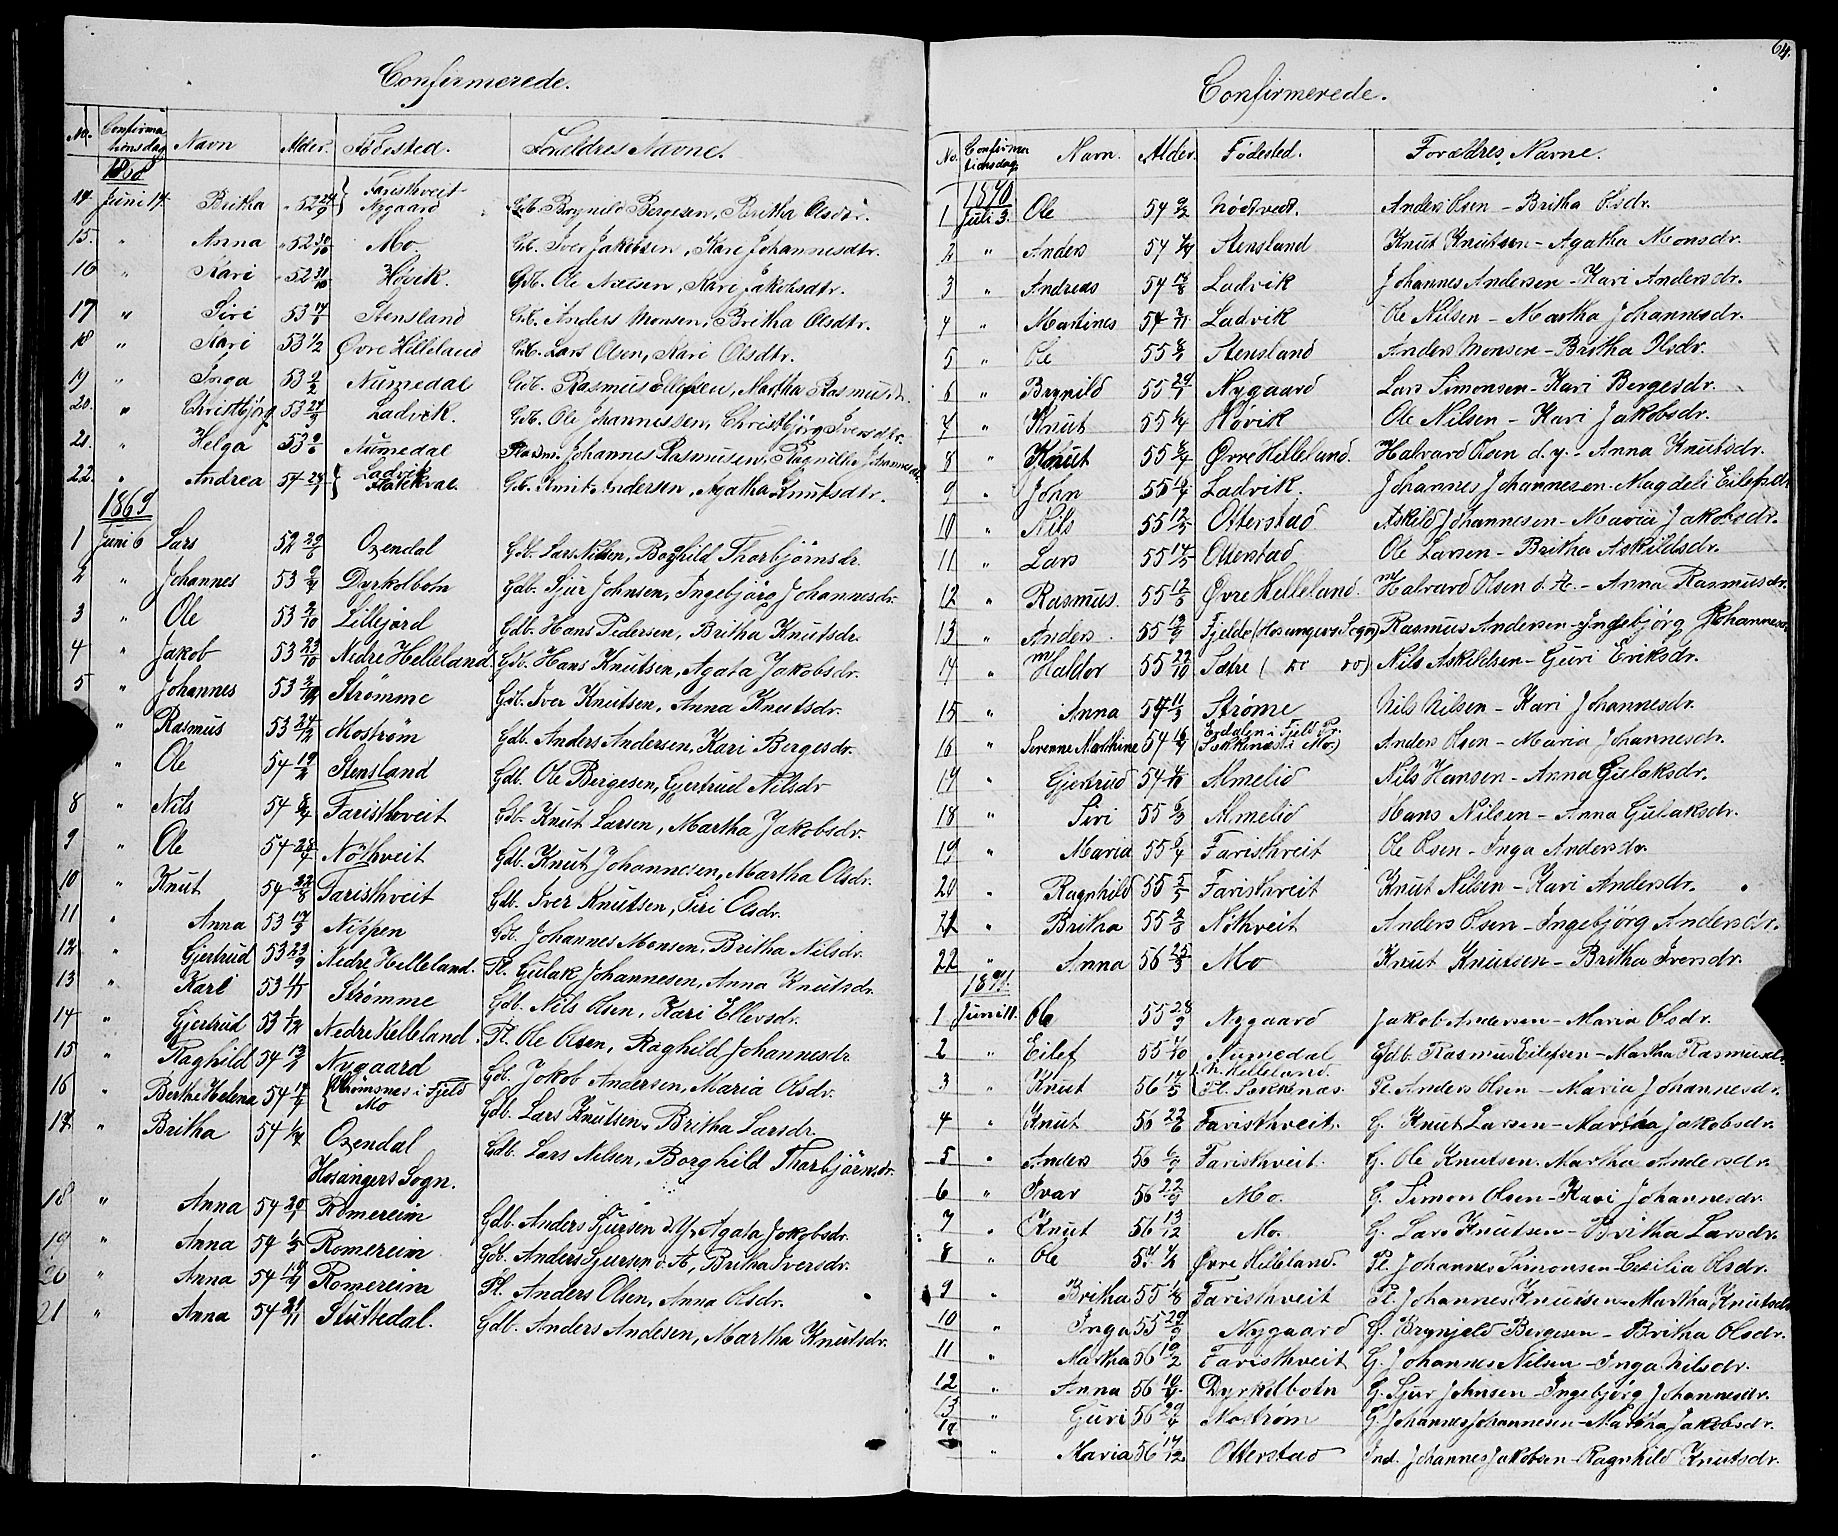 64.
Confirmerede.
No. Confirmationsdag Navn Alder. Fødested. Forældres Navne.
1868
14 Juni 14 Britha 52 24/9 Faristhveit Nygaard Gdb. Brynild Bergesen, Britha Olsdtr.
15. " Anna 52 30/10 Mo. Gdb. Iver Jakobsen, Kari Johannesdtr.
16 " Kari 52 31/10 Høvik. Gdb. Ole Nilsen, Kari Jakobsdtr.
17 " Siri 53 Stensland Gdb. Anders Monsen, Britha Olsdtr.
18 " Kari 53 1/2 Øvre Helleland Gdb. Lars Olsen, Kari Olsdtr.
19 " Inga 53 9/2 Numedal Gdb. Rasmus Ellefsen, Martha Rasmusdr.
20. " Christbjørg 53 Ladvik. Gdb. Ole Johannessen, Christbjørg Iversdtr.
21. " Helga 53 Numedal Johannes Rasmusen, Ragnilla Johannesdr.
22. " Andrea 54 Ladvik Gdb. Knut Andersen, Agatha Knutsdtr.
1869
1 Juni 6 Lars 52 Ozendal Gdb. Lars Nilsen, Borghild Thorbjørnsdr.
2 " Johannes 53 Dyrkolbotn Gdb. Sjur Johnsen, Ingebjørg Johannesdr.
3 " Ole 53 2/10 Lillejord Gdb. Hans Pedersen, Britha Knutsdr.
4 " Jakob 53 23/10 Nedre Helleland. Gdb. Hans Knutsen, Agata Jakobsdr.
5 " Johannes 53 Strømme Gdb. Iver Knutsen, Anna Knutsdr.
" Rasmus 53 24/12 Mostrøm Gdb. Anders Andersen, Kari Bergesdr.
" Ole 54 19/2 Stensland Gdb. Ole Bergesen, Gjertrud Nilsdr
8 " Nils 54 Faristhveit Gdb. Knut Larsen, Martha Jakobsdr.
9 " Ole 54 Nöthveit Gdb. Knut Johannesen, Martha Olsdr.
10 " Knut 54 22/8 Faristhveit Gdb. Iver Knutsen, Siri Olsdr.
11 " Anna 53 Nippen Gdb. Johannes Monsen, Britha Nilsdr.
12 " Gjertrud 53 Nedre Helleland. Pl. Gulak Johannesen, Anna Knutsdr.
13 " Kari 53 Strømme Gdb. Nils Olsen, Kari Ellevsdr.
14 " Gjertrud 53 Nedre Helleland. Pl. Ole Olsen, Raghild Johannesdr.
15 " Raghild 54 13/2 Nygaard Gdb. Jakob Andersen, Maria Olsdr.
16 " Berthe Helena 54 i Fjeld Mo Gdb. Lars Knutsen, Britha Larsdr.
17. " Britha 54 Ozendal Gdb. Lars Nilsen, Borghild Thorbjørnsdr.
Hosangers Sogn.
18 " Anna 54 Romereim Gdb. Anders Sjursen d. Y, Agata Jakobsdr.
19 " Anna 54 Romereim Gdb. Anders Sjursen d. Æ, Britha Iversdr.
20 " Anna 54 Romereim Pl. Anders Olsen, Anna Olsdr.
21 " Anna 54 21/11 Stuttedal. Gdb. Anders Andesen, Martha Knutsdr.
Confirmerede.
No. Confirmationsdag Navn. Alder. Fødested. Forældres Navne.
1870
1 Juli 3. Ole 54 9/2 Nödtvedt. Anders Olsen - Britha Olsdr.
2 " Anders 54 Stensland Knut Knutsen - Agatha Monsdr.
3 " Andreas 54 Ladvik Johannes Andersen - Kari Andersdr.
4 " Martines 54 Ladvik Ole Nilsen - Martha Johannesdr.
5 " Ole 55 Stensland Anders Monsen - Britha Olsdr.
6 " Brynild 55 Nygaard Lars Simonsen - Kari Bergesdr.
7 " Knut 55 Høvik Ole Nilsen - Kari Jakobsdr.
8 " Knut 55 Øvre Helleland. Halvard Olsen d. y. - Anna Knutsdr.
9 " John 55 Ladvik. Johannes Johannesen - Magdeli Eilefsdr
10 " Nils 55 Otterstad Askild Johannesen - Maria Jakobsdr.
11 " Lars 55 Otterstad Ole Larsen - Britha Askildsdr.
12 " Rasmus. 55 12/5 Øvre Helleland. Halvard Olsen d. Æ. - Anna Rasmusdr.
13 " Anders. 55 Fjelde (Hosangers Sogn) Rasmus Andersen - Ingebjørg Johannesdr
14 " Haldor 55 22/10 Sætre ( do do) Nils Askildsen - Guri Eriksdr.
15 " Anna 54 11/3 Strøme Nils Nilsen - Kari Johannesdr.
16 " Serenne Marthine 54 Eidalen i Fjeld Pr. (Sekkenæs i Mo) Anders Olsen - Maria Johannesdr.
17 " Gjertrud 54 Almelid Nils Hansen - Anna Gulaksdr.
18 " Siri 55 Almelid Hans Nilsen - Anna Gulaksdr.
19 " Maria 55 Faristhveit Ole Olsen - Inga Andersdr.
20 " Ragnhild 55 5/5 Faristhveit Knut Nilsen - Kari Andersdr.
21 " Britha 55 Nöthveit Anders Olsen - Ingebjørg Andersdr.
22 " Anna 56 25/3 Mo Knut Knutsen - Britha Iversdr.
1871.
1 Juni 11. Ole 55 Nygaard Jakob Andersen - Maria Olsdr.
2 " Eilef 55 Numedal Gdb. Rasmus Eilefsen - Martha Rasmusdr
3 " Knut 56 N. Helleland Pl. Sekkenæs. Pl. Anders Olsen - Maria Johannesdr.
4 " Knut 56 Faristhveit. G. Knut Larsen - Martha Jakobsdr.
5 " Anders 56 Faristhveit. G. Ole Knutsen - Martha Andersdr.
6 " Ivar 56 22/9 Mo. G. Simon Olsen - Kari Johannesdr.
7 " Knut 56 13/12 Mo. G. Lars Knutsen - Britha Larsdr.
8 " Ole 57 Øvre Helleland. Pl. Johannes Simonsen - Cesilia Olsdr.
9 " Britha 55 Faristhveit Pl. Johannes Knutsen - Martha Knutsdr
10 " Inga 55 Nygaard G. Brynjeld Bergesen - Britha Olsdr.
11 " Martha 56 Faristhveit G. Johannes Nilsen - Inga Nilsdr.
12 " Anna 56 Dyrkolbotn G. Sjur Johnsen - Ingebjørg Johannesdr.
13 " Guri 56 Mostrøm G. Johannes Johannesen - Martha Jakobsdr.
" Maria 56 17/12 Otterstad Ind. Johannes Jakobsen - Ragnhild Knutsdr.